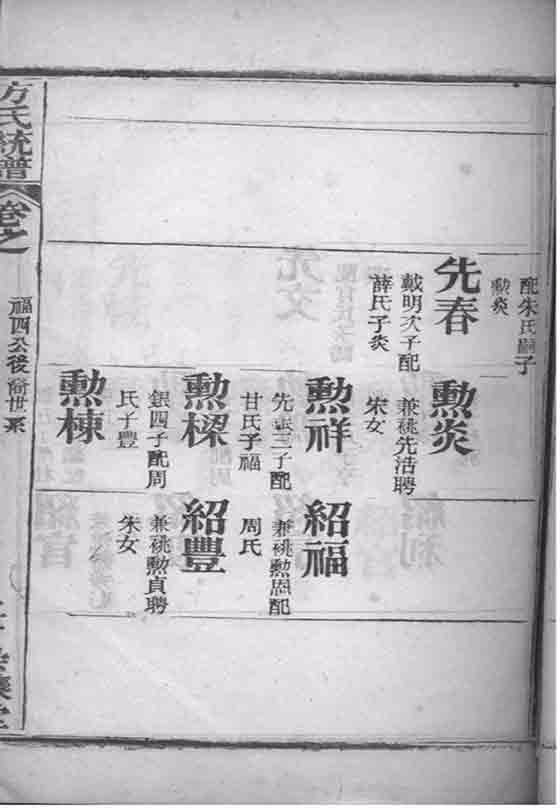 配朱氏嗣子
勲炎
先春
戴明次子配
薛氏子炎
勲炎
兼祧先浩聘
宋女
勲祥
先三子配
甘氏子福
紹福
兼祧勲恩配
周氏
勲樑
銀四子配周
氏子豐
紹豐
兼祧勲貞聘
朱女
勲棟
方氏統譜
卷之
福四公後裔世系